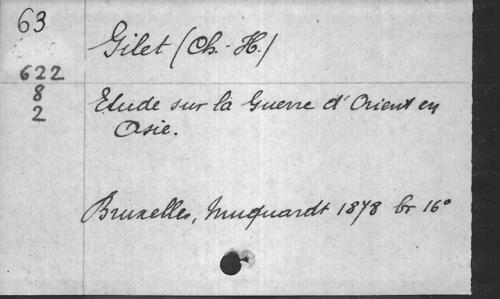 63
Gilet (Ch. H.)
622
8
2
Etude sur la Guerre d'Orient en
Asie.
Bruxelles, Muquardt 1878 br 16°